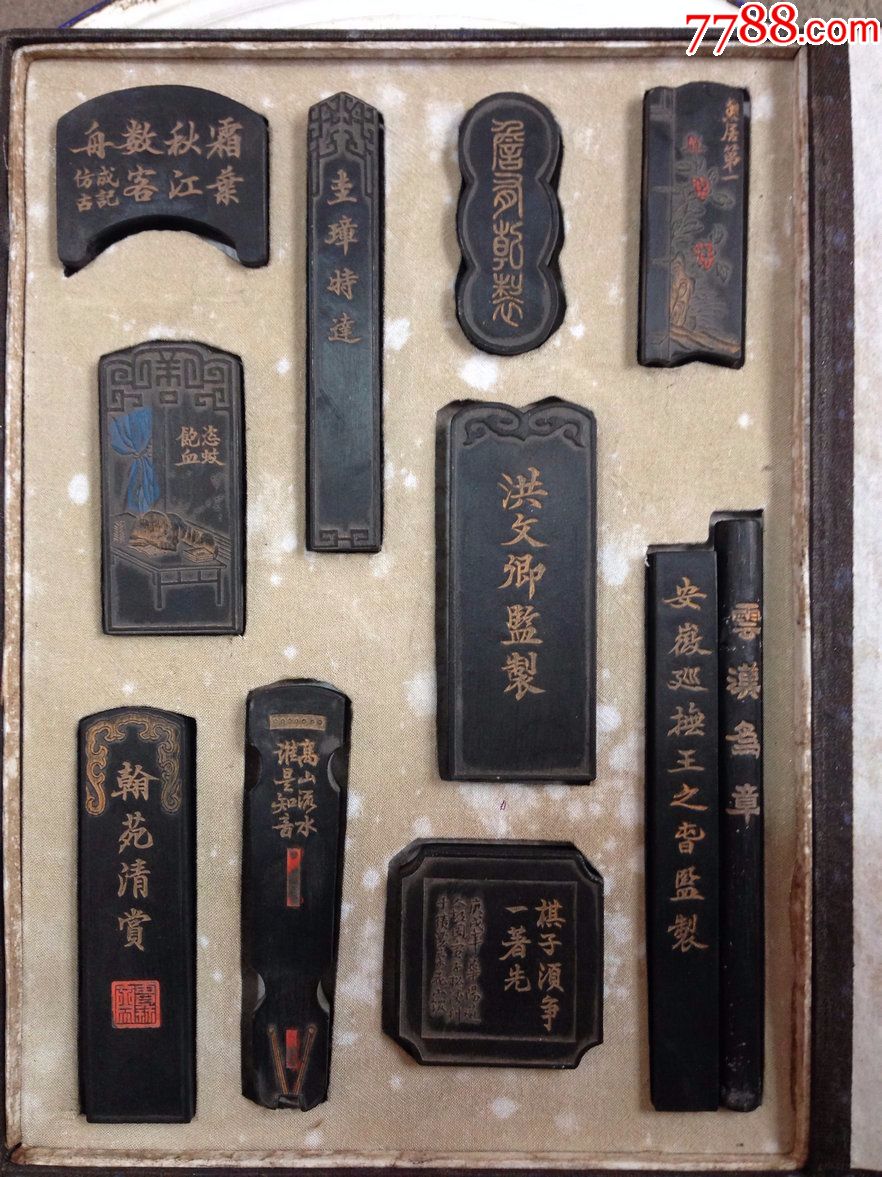 7788.com
霜葉
秋江
数客
舟
成記
仿古
圭璋特達
詹
乾製
第一
恣蚊
飽血
洪文卿監製
安徽巡撫王之春監製
雲漢為章
翰苑清賞
高山流水
誰是知音
棋子須争
一著先